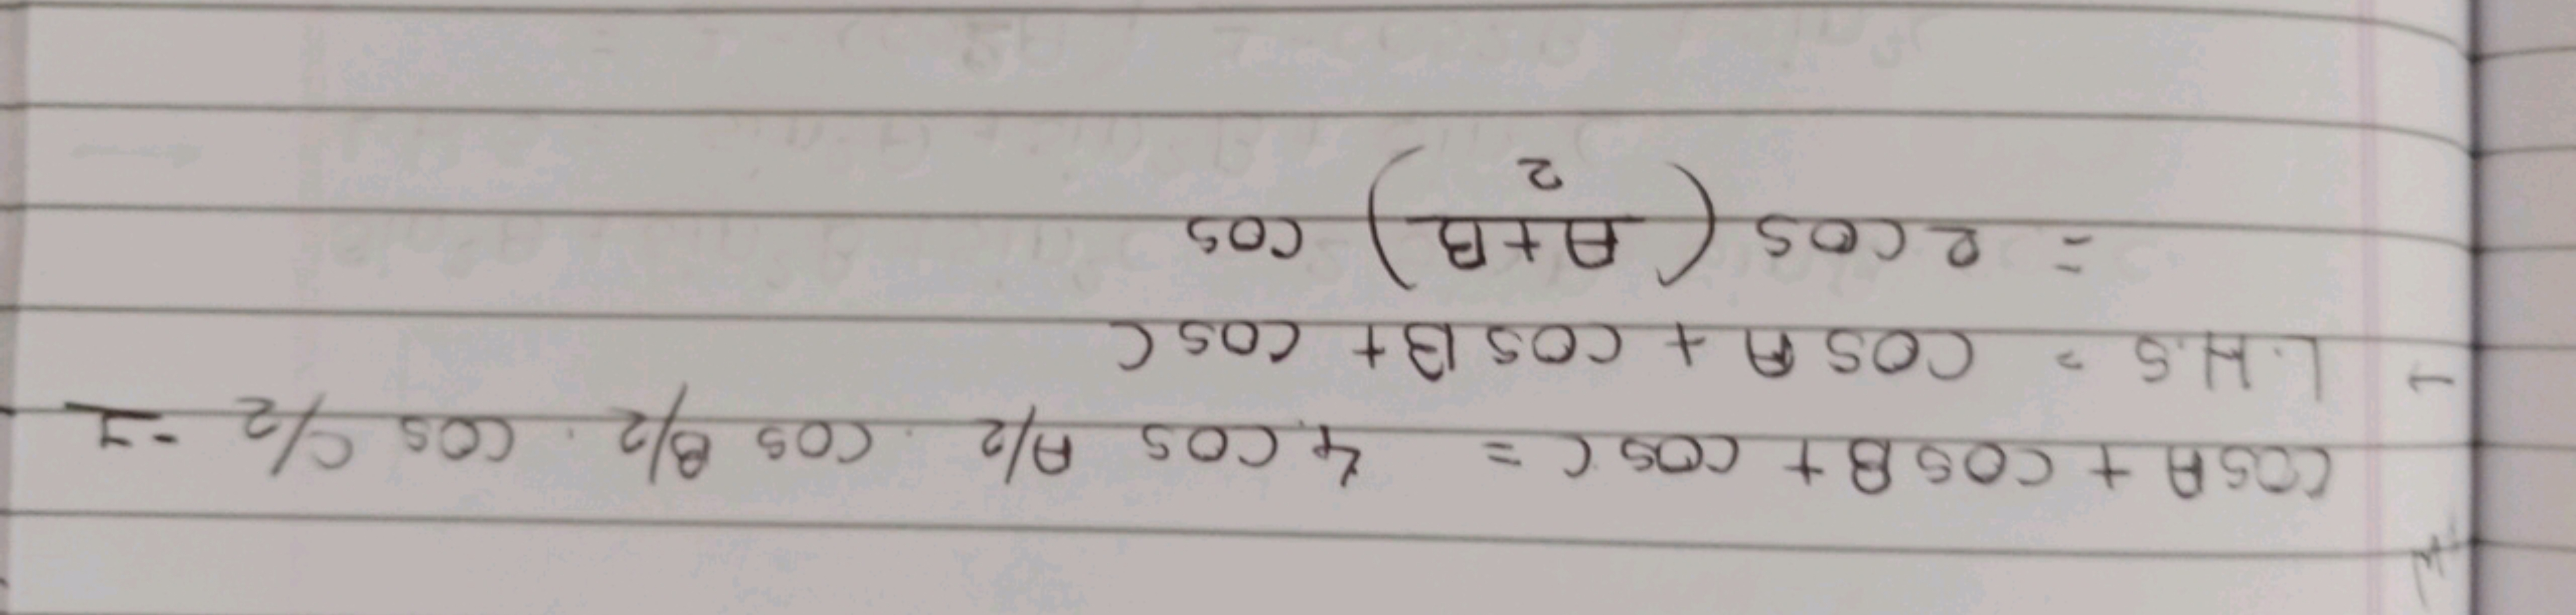 cosA + cosB + cosC = 4 cos A/2 . cos B/2 . cos C/2 - 1
→ L.H.S = cosA + cosB + cosC
= 2 cos (A+B/2) cos